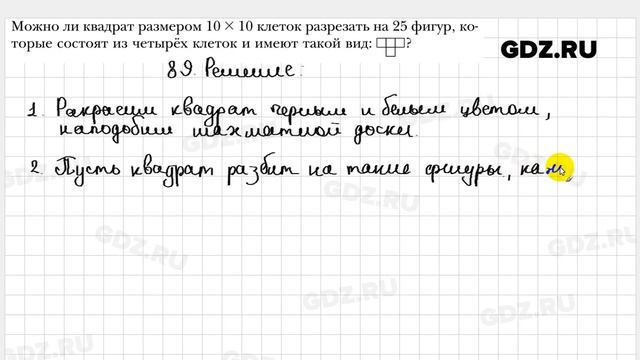 Можно ли квадрат размером 10 × 10 клеток разрезать на 25 фигур, ко-
торые состоят из четырёх клеток и имеют такой вид: ?
GDZ.RU
89. Решение:
1. Ракрасим квадрат черным и белым цветом,
наподобии шахматной доски.
2. Пусть квадрат разбит на такие фигуры, как,
GDZ.RU
GDZ.RU
GDZ.RU
GDZ.RU
GDZ.RU
GDZ.RU
GDZ.RU